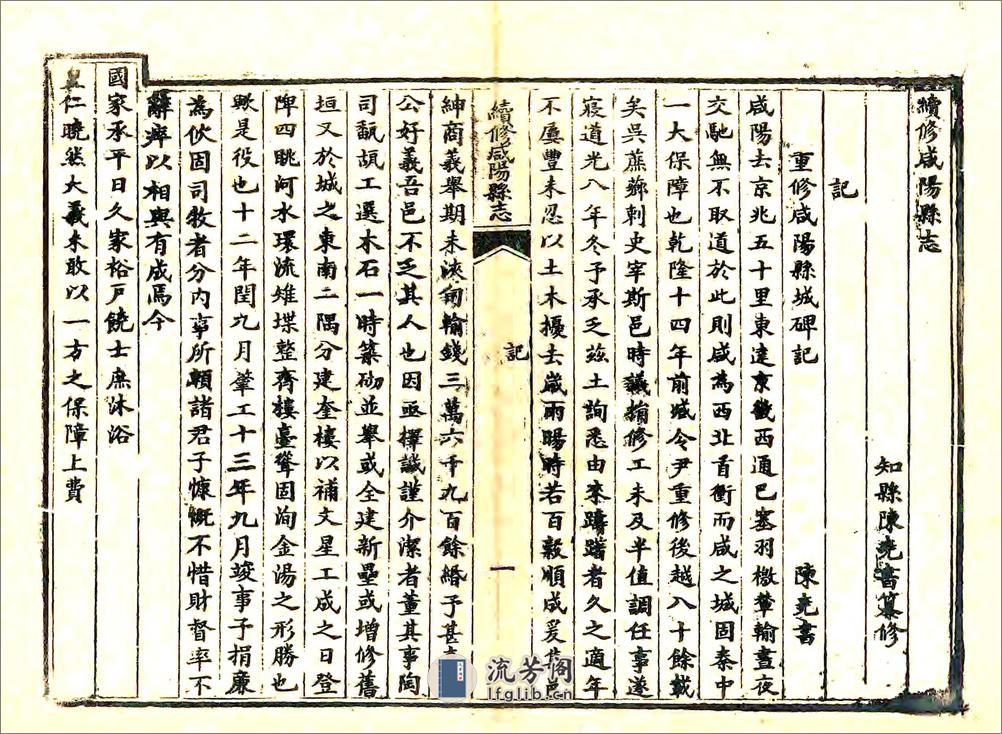 續修咸陽縣志
知縣陳堯書纂修
記
重修咸陽縣城碑記
陳堯書
咸陽去京兆五十里東達京畿西通巴塞羽檄輦輸晝夜
交馳無不取道於此則咸為西北首衝而咸之城固秦中
一大保障也乾隆十四年前臧令尹重修後越八十餘載
矣吳蕉薌刺史宰斯邑時議捐修工未及半值調任事遂
寢道光八年冬予承乏茲土詢悉由來躊躇者久之適年
不屢豐未忍以土木擾去歲雨暘時若百穀順成爰集邑
續修咸陽縣志
記
一
紳商義舉期未浹旬輸錢三萬六千九百餘緡予甚
公好義吾邑不乏其人也因亟擇誠謹介潔者董其事陶
司甎瓿工選木石一時築砌並舉或全建新壘或增修舊
垣又於城之東南二隅分建奎樓以補文星工成之日登
陴四眺河水環流雉堞整齊樓臺聳固洵金湯之形勝也
歟是役也十二年閏九月肇工十三年九月竣事予捐廉
為伙固司牧者分内事所賴諸君子慷慨不惜財督率不
辭瘁以相與有成焉今
國家承平日久家裕戶饒士庶沐浴
皇仁曉然大義未敢以一方之保障上費
流芳阁
lfglib.cn